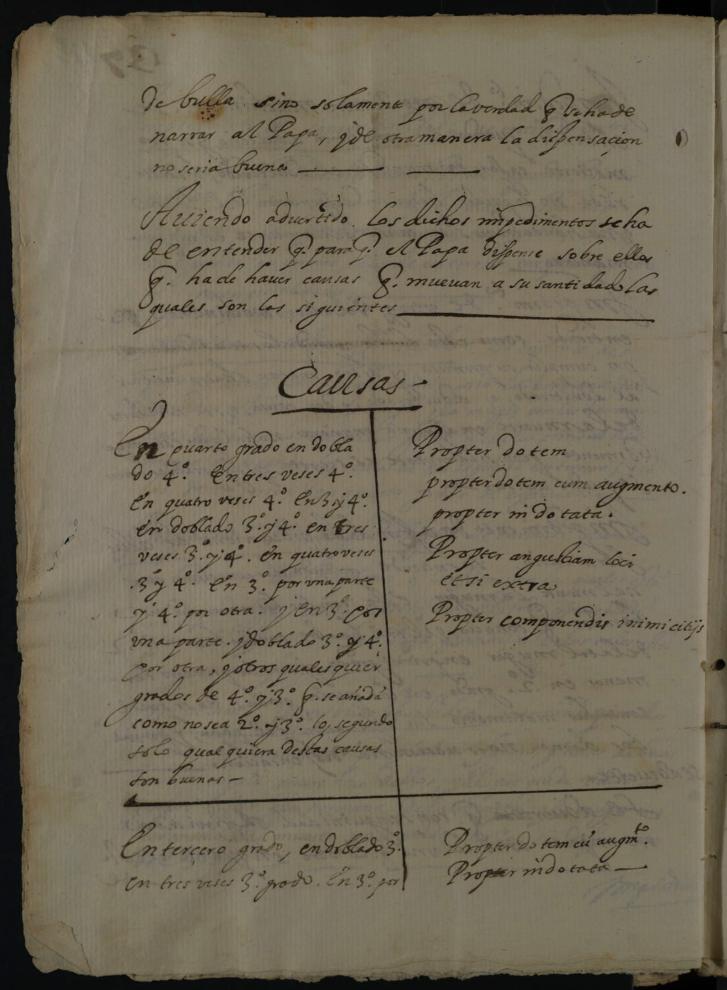 de bulla sino solamente por la verdad q̃ se ha de
narrar al Papa, y de otra manera la dispensaçion
no seria buena
Auiendo aduertido los dichos impedimentos se ha
de entender q. para q. el Papa dispense sobre ellos
q. ha de hauer causas q. mueuan a su santidad las
quales son las siguientes
Causas
En quarto grado en dobla
do 4º. En tres veses 4º.
En quatro veses 4º. En 3º y 4º.
en doblado 3º. y 4º. en tres
veses 3º. y 4º. en quatro veses
3º y 4º. En 3º. por vna parte
y 4º. por otra. y en 3º. por
vna parte. y doblado 3º. y 4º.
por otra, y otros quales quier
grados de 4º. y 3º. q. se añada
como no sea 2º. y 3º. lo segundo
solo qual quiera destas causas
son buenas
Propter dotem
propter dotem cum augmento.
propter indotata.
Propter angustiam loci
et si extra
Propter componendis inimicitijs
En tercero grado, en doblado 3º.
en tres veses 3º. grado. En 3º. por
Propter dotem cũ augmto.
Propter indotata